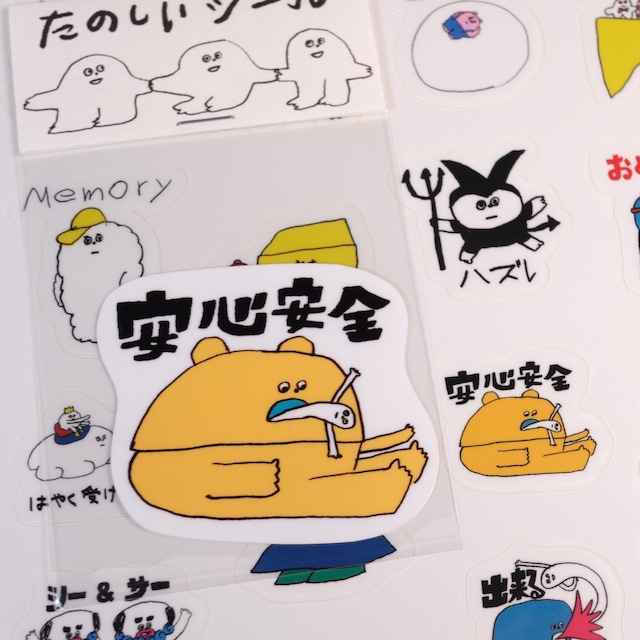 たのしいシール
Memory
ハズレ
安心安全
安心安全
はやく受け
シー & サー
出来る